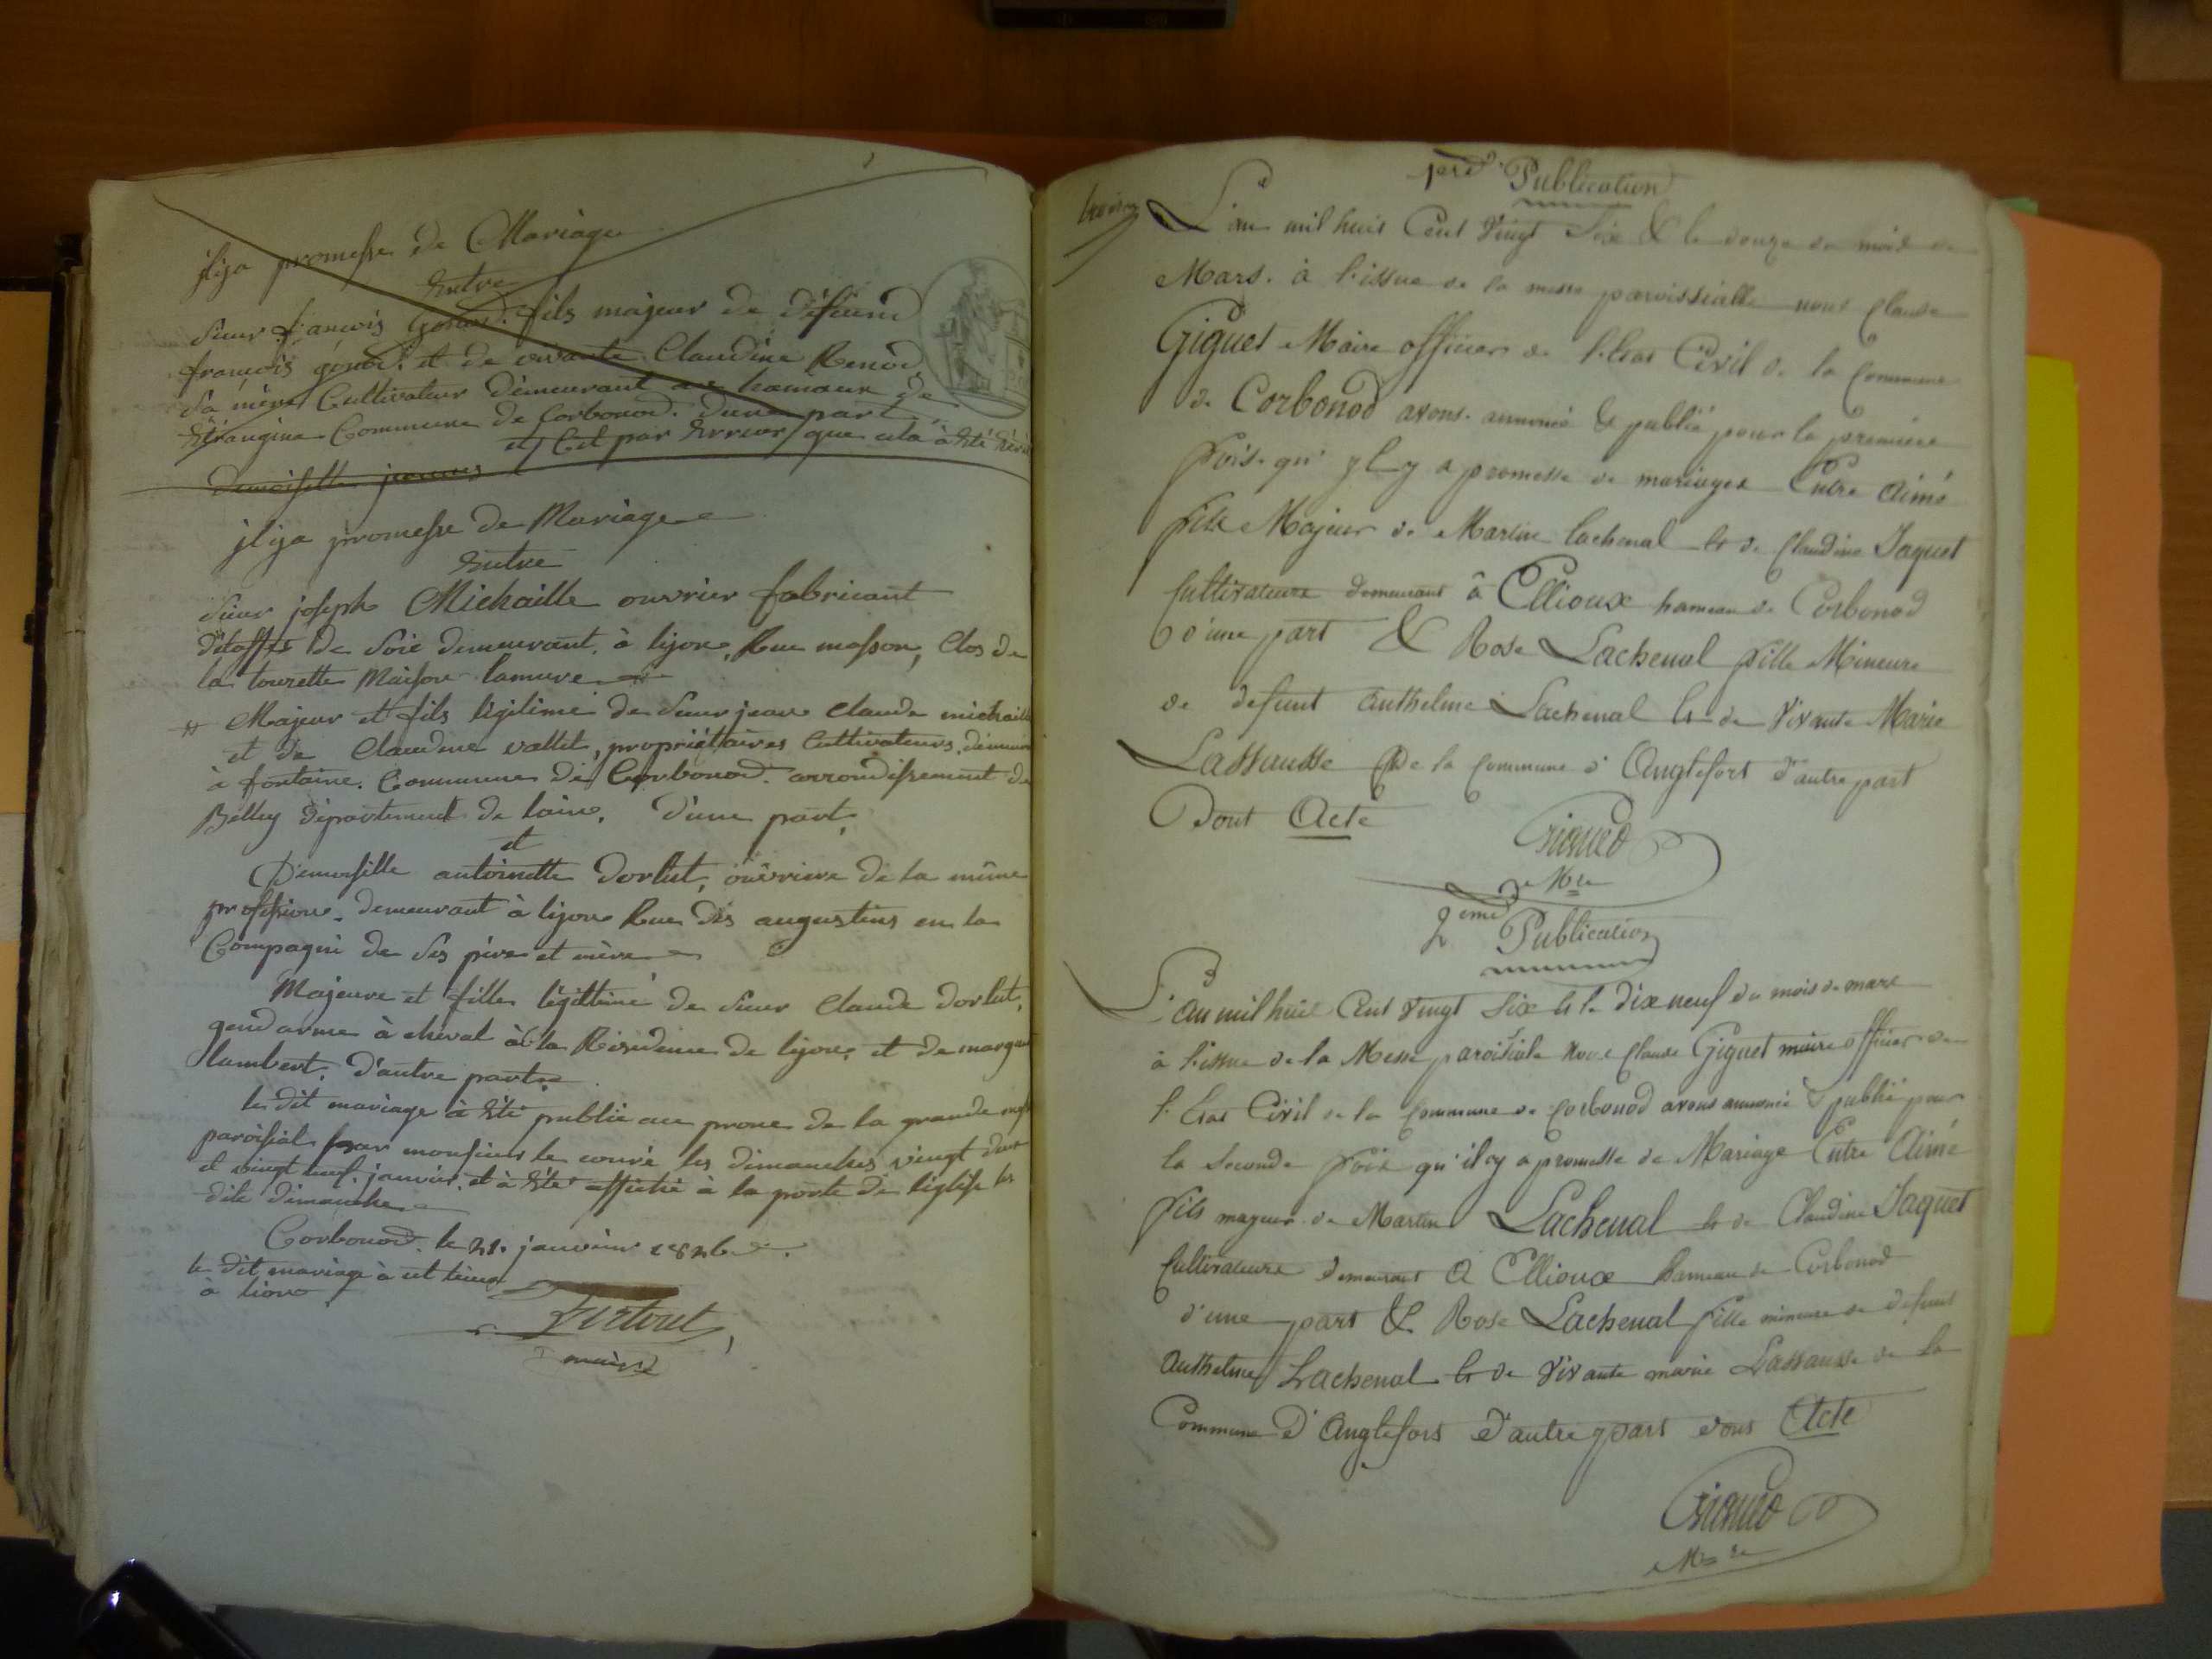 jlija promesse de Mariage
Entre
Sieur francois gonod. fils majeur de déffund
francois gonod. et de vivante Claudine Renod,
Sa mère Cultivateur demeurant au hamaux de
Etrangine Commune de Corbonod. dune part
et C'est par Erreur que cela à Eté
demoiselle
jlija promesse de Mariage
Entre
Sieur joseph Michaille ouvrier fabricant
d'étoffes de Soie demeurant. à lijon, Rue masson, Clos de
la tourette Maison lamure
Majeur et fils légitime de Sieur jean Claude michaille
et de Claudine vallet, propriétaires Cultivateurs,
à fontaine. Commune de Corbonod. arrondissement de
Belley département de lain, D'une part,
et
Demoiselle antoinette Dorlut, ouvriere de la même
profession. demeurant à lijon Rue des augustins en la
Compagni de Ses père et mère
Majeure et fille légittime de Sieur Claude Dorlut,
gendarme à cheval à la Résidence de lijon, et de
lambert, d'autre part
le dit mariage à Eté publié au prone de la grande
paroissial par monsieur le couré les dimanches vingt deux
et vingt neuf. janvier. et à Eté affiché à la porte de l'église les
dits dimanche
Corbonod. le 31. janvier 1826
le dit mariage à
à lion
maire
1ere Publication
L'an mil huit Cent Vingt Six & le douze du mois de
Mars. à l'issue de la messe paroissialle nous Claude
Giguet Maire officier de l'Etat Civil de la Commune
de Corbonod avons annoncé & publié pour la première
fois qu' yl y a promesse de mariages Entre Aimé
fils Majeur de Martin Lachenal & de Claudine Jaquet
Cultivateurs demeurant à Ellioux hameau de Corbonod
d'une part & Rose Lachenal fille Mineure
de defunt Anthelme Lachenal & de Vivante Marie
Lassausse de la Commune d'Anglefort d'autre part
Dont Acte
Giguet
Mre
2eme Publication
L'an mil huit Cent Vingt Six & le dix neuf du mois de mars
à l'issue de la Messe paroisiale Nous Claude Giguet maire officier de
l'Etat Civil de la Commune de Corbonod avons annoncé & publié pour
la Seconde fois qu'il y a promesse de Mariage Entre Aimé
fils majeur de Martin Lachenal & de Claudine Jaquet
Cultivateurs demeurant à Ellioux hameau de Corbonod
d'une part & Rose Lachenal fille mineure de defunt
Anthelme Lachenal & de Vivante marie Lassausse de la
Commune d'Anglefort d'autre part dont Acte
Giguet
Mre